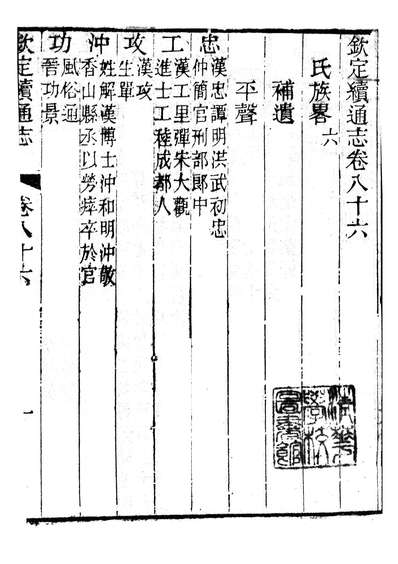 欽定續通志卷八十六
氏族畧六
補遺
平聲
忠
漢忠譚明洪武初忠
仲簡官刑部郎中
工
漢工里彈宋大觀
進士工程成都人
攻
漢攻
生單
沖
姓解漢博士沖和明沖敬
香山縣丞以勞瘁卒於官
功
風俗通
晉功景
欽定續通志
卷八十六
一
清華
學校
圖書館